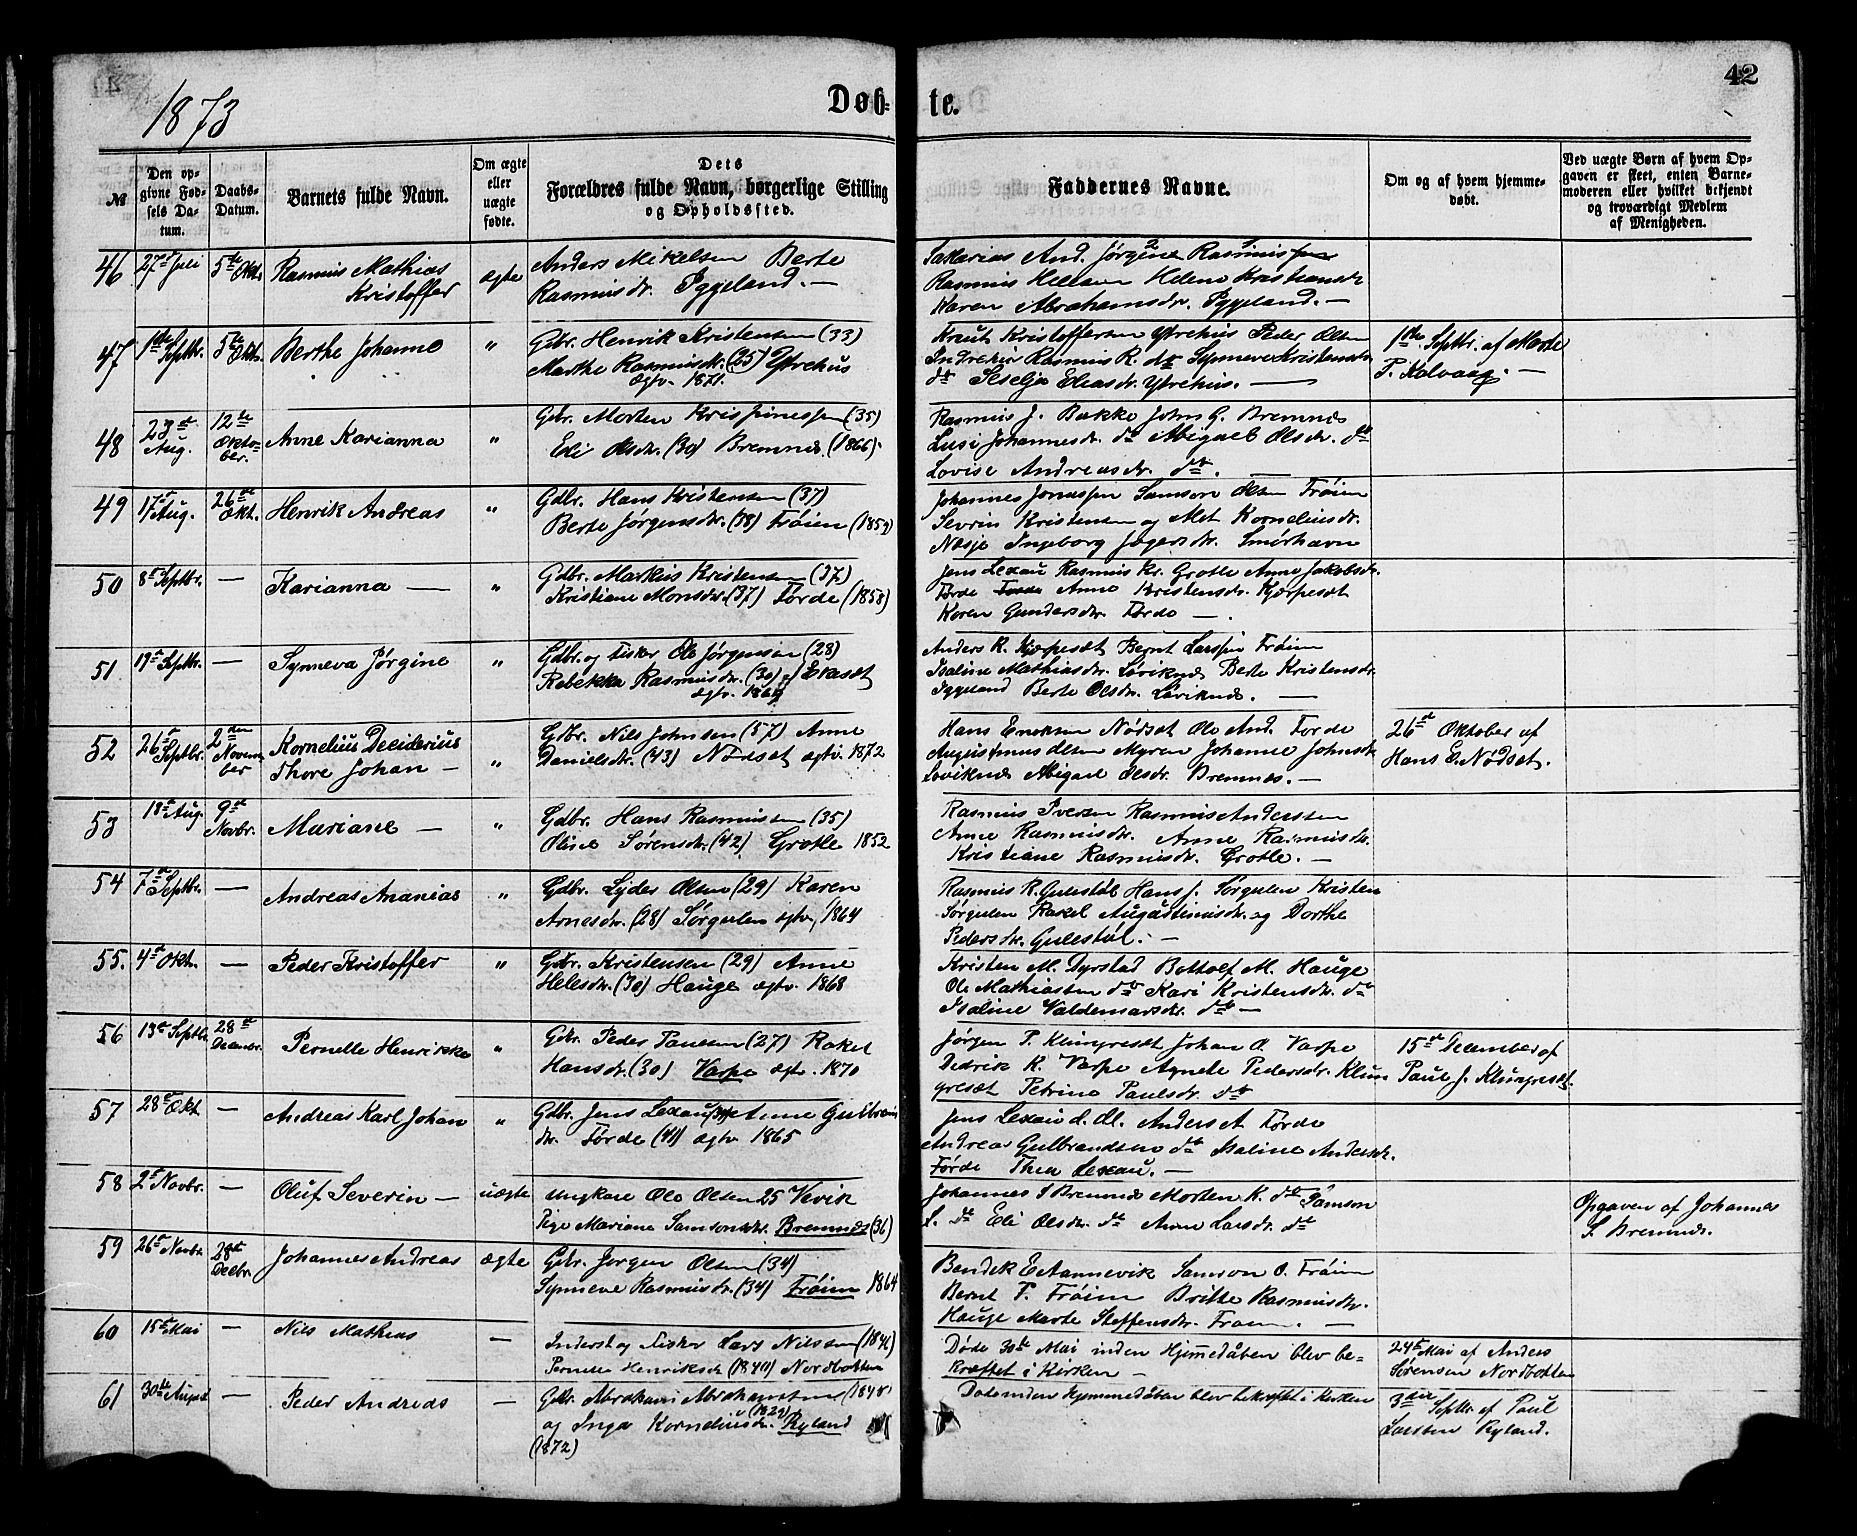 1873
Døb-
te.
42
№
Den opgivne Fødsels Datum.
Daabs-Datum.
Barnets fulde Navn.
Om ægte eller uægte fødte.
Dets Forældres fulde Navn, borgerlige Stilling og Opholdssted.
Faddernes Navne.
Om og af hvem hjemmedøbt.
Ved uægte Børn af hvem Opgaven er skeet, enten Barnemoderen eller hvilket bekjendt og troværdigt Medlem af Menigheden.
46 27de Juli 5te Okt. Rasmus Mathias Kristoffer ægte
Anders Mikelsen Berte
Rasmusdr. Iggeland. —
Sakarias And. Jørgine Rasmus
Rasmus Helene Kristiansdr
Karen Abrahamsdr. Iggeland. —
47 1ste Septbr. 5te Okt. Berthe Johanne "
Gdbr. Henrik Kristensen (33)
Marthe Rasmusdr. (25) Ytrehus
Ægtv. 1871.
Knut Kristoffersen Ytrehus Peder Olsen
Indrehus Rasmus R. do Synneve Kristensdr
do Seselje Eliasdr. Ytrehus. —
1ste Septbr. af Marte
P. Kalvaag. —
48 23de Aug. 12te Oktober. Anne Karianna "
Gbr. Morten Krispinussen (35)
Eli Olsdr. (30) Bremnes. (1866).
Rasmus J. Bakke Johns G. Bremnes
Lusi Johannesdr. do Abigael Olsdr. do
Lovise Andreasdr. do.
49 17de Aug. 26de Okt. Henrik Andreas "
Gdbr. Hans Kristensen (37)
Berte Jørgensdr. (38) Frøien (1859)
Johannes Jonassen Samson Olsen Frøien
Sevrin Kristensen og Met Korneliusdr.
Nesje Ingeborg Jogersdr. Smørhavn
50 8de Septbr. — Karianna — "
Gdbr. Markus Kristensen (37)
Kristiane Monsdr. (37) Førde (1858)
Jens Lexau Rasmus Kr. Grotle Anne Jakobsdr.
Førde Anne Kristensdr. Kjerpeset
Karen Gundersdr. Førde —.
51 19de Septbr. — Synneva Jørgine "
Gdbr. og Fisker Ole Jørgensen (28)
Rebekka Rasmusdr. (30) Ekaset
ægtv. 1869
Anders R. Kjerpeset Bernt Larssen Frøien
Isaline Mathiasdr. Løviknes Berte Kristensdr.
Iggeland Berte Olsdr. Løviknes. —
52 26de Septbr. 2den November Kornelius Deciderius Thore Johan — "
Gdbr. Nils Johnsen (57) Anne
Danielsdr. (43) Nødset ægtv. 1872
Hans Eriksen Nødset Ole And. Førde
Augustinus Olsen Myren Johanne Johnsdr
Løviknes Abigael Olsdr. Bremnes. —
26de Oktober af
Hans E. Nødset.
53 18de Aug. 9de Novbr. Mariane — "
Gdbr. Hans Rasmussen (35)
Oline Sørensdr. (42) Grotle 1852
Rasmus Iversen Rasmus Anderssen
Anne Rasmusdr. Anne Rasmusdr.
Kristiane Rasmusdr. Grotle. —
54 7de Septbr. — Andreas Ananias "
Gdbr. Lyder Olsen (29) Karen
Arnesdr. (28) Sørgulen ægtv. 1864
Rasmus R. Gulestøl Hans J. Sørgulen Kristen
Sørgulen Rakel Augustinusdr. og Dorthe
Pedersdr. Gulestøl. —
55. 4de Okt. — Peder Kristoffer "
Gdbr. Kristensen (29) Anne
Helesdr. (30) Hauge ægtv. 1868
Kristen M. Dyrstad Bottolf M. Hauge
Ole Mathiassen do Kari Kristensdr. do
Isaline Valdemarsdr. do —
56 13de Septbr. 28de Decembr. Pernelle Henrikke "
Gdbr. Peder Paulsen (27) Rakel
Hansdr. (30) Varpe ægtv. 1870
Jørgen P. Klungreset Johan O. Varpe
Didrik K. Varpe Agnete Pedersdr. Klun
greset Petrine Paulsdr. do
15de December af
Paul J. Klungreset.
57 28de Okt — Andreas Karl Johan "
Gdbr. Jens Lexau (39) Anne Gulbrans
dr. Førde (41) ægtv 1865
Jens Lexau d. Æl. Anders A Førde
Andreas Gulbrandsen do Isaline Andersdr.
Førde Thea Lexau. —
58 2de Novbr. — Oluf Severin — uægte
Ungkarl Ole Olsen 25 Vevik
Pige Mariane Samsonsdr. Bremnes (36)
Johannes S Bremnes Morten K. do Samson
S. do Eli Olsdr. do Anne Larsdr. do
Opgaven af Johannes
S. Bremnes.
59 26de Novbr. 28de Decbr. Johannes Andreas ægte
Gdbr. Jørgen Olsen (34)
Synneve Rasmusdr. (34) Frøien 1864
Bendik E Hannevik Samson O. Frøien
Bernt P. Frøien Britte Rasmusdr.
Hauge Marte Steffensdr. Frøien. —
60 15de Mai — Nils Mathias —
Inderst og Fisker Lars Nilssen (1846)
Pernelle Henriksdr (1840) Nordbotten
Døde 30te Mai inden Hjemmedåben blev be-
kræftet i Kirken —
24de Mai af Anders
Sørensen Nordbotten
61 30te August — Peder Andreas —
Gdbr. Abraham Abrahamsen (1848)
og Inga Korneliusdr. (1829) Ryland
(1872)
Døde inden hjemmedåben blev bekræftet i Kirken
3die Septbr. af Paul
Larssen Ryland.